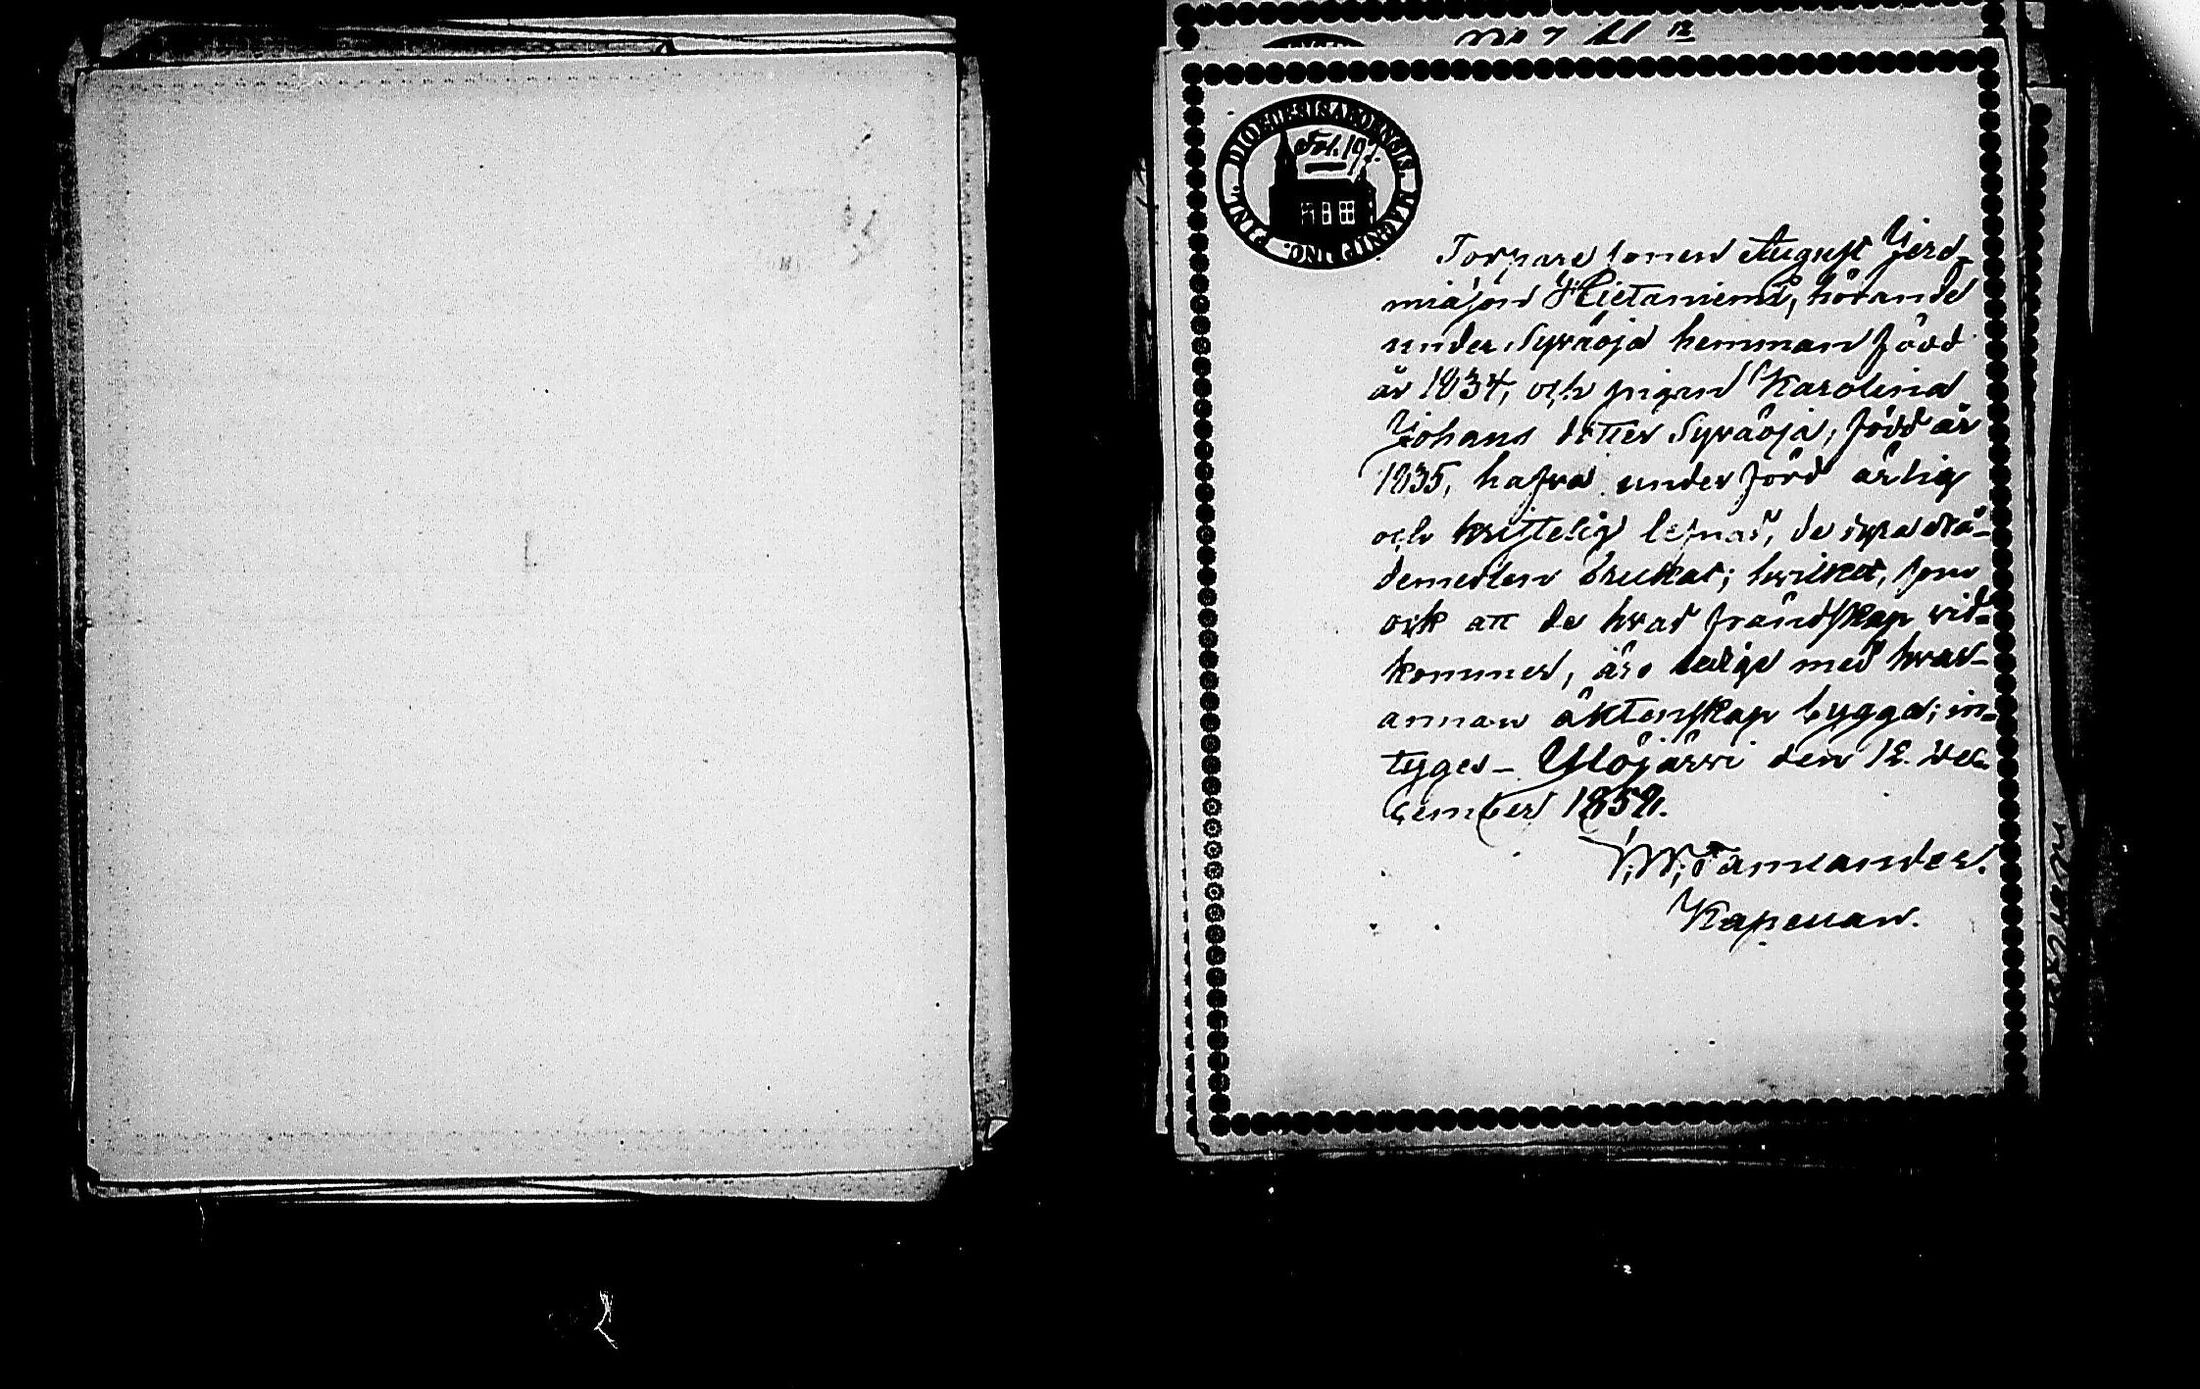 Fol. 197.
Torpare sonen August Jere-
miasson Hietaniemi, hörande
under Syräoja hemman född
år 1834, och pigan Karolina
Johans dotter Syräoja, född år
1835, hafva under förd ärlig
och kristelig lefnad,
bruket; hvilket, som
ock att de hvad frändskap vid-
kommer, äro ledige med hvar-
annan äktenskap bygga; in-
tyges – Ylöjärvi den 12. De-
cember 1859.
Kapellan.